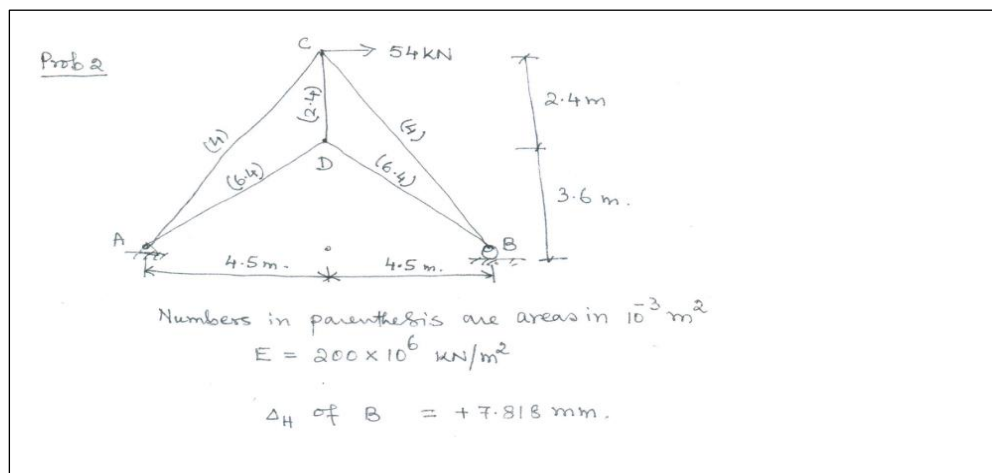 Prob 2
C
54 KN
(2.4)
2.4 m
(4)
(4)
D
(6.4)
(6.4)
3.6 m.
A
B
4.5 m.
4.5 m.
Numbers in parenthesis are areas in 10⁻³ m²
E = 200 × 10⁶ KN/m²
Δ_H of B = + 7.818 mm.